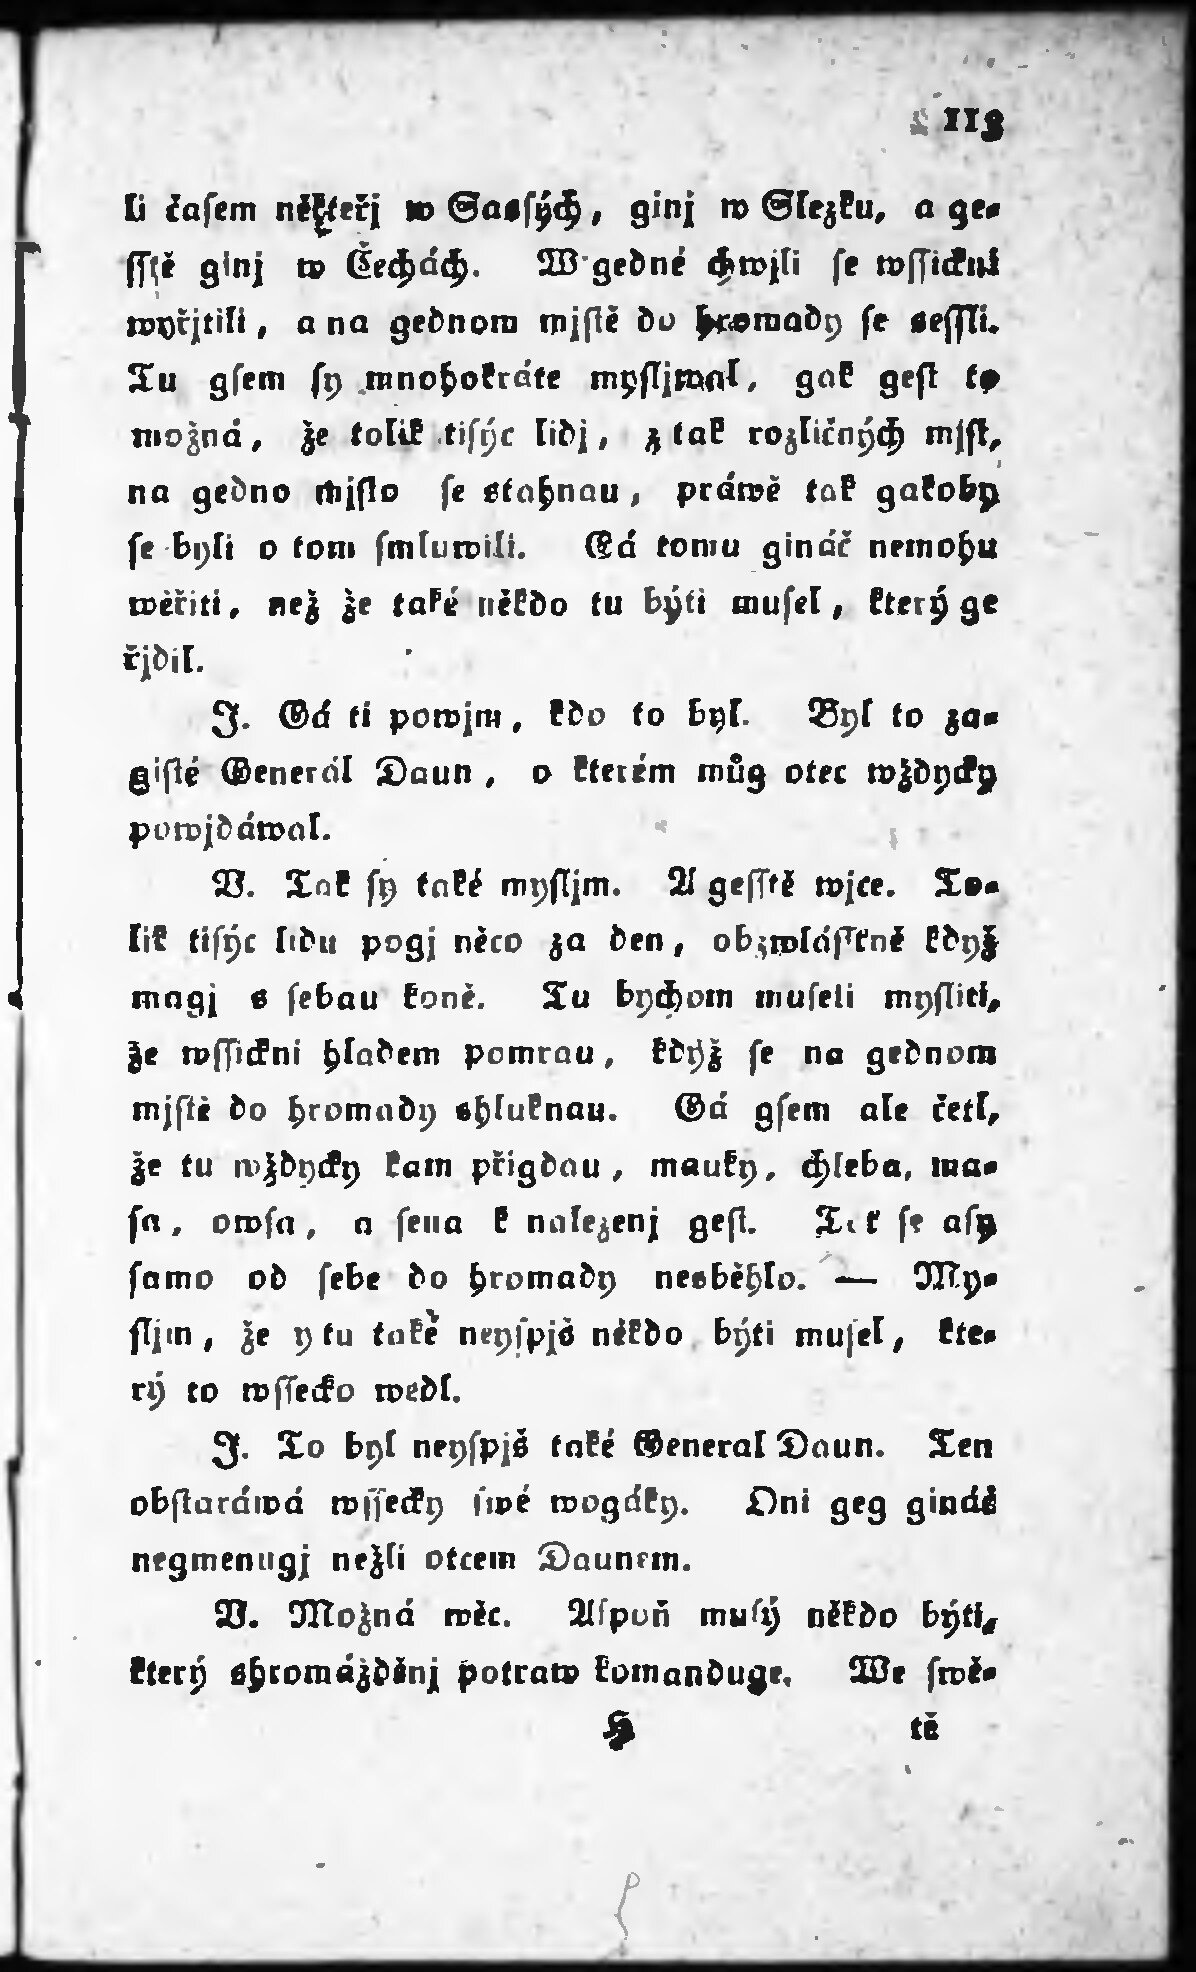 113
li čaſem někteřj w Saſſých, ginj w Slezku, a ge-
ſſtě ginj w Čechách. W gedné chwjli ſe wſſickni
wyřjtili, a na gednom mjſtě do hromady ſe seſſli.
Tu gſem ſy mnohokráte myſljwal, gak geſt to
možná, že tolik tiſýc lidj, z tak rozličných mjſt,
na gedno mjſto ſe stahnau, práwě tak gakoby
ſe byli o tom ſmluwili. Gá tomu gináč nemohu
wěřiti, než že také někdo tu býti muſel, který ge
řjdil.
J. Gá ti powjm, kdo to byl. Byl to za-
giſté Generál Daun, o kterém můg otec wždycky
powjdáwal.
W. Tak ſy také myſljm. A geſſtě wjce. To-
lik tiſýc lidu pogj něco za den, obzwláſſtně když
magj s ſebau koně. Tu bychom muſeli myſliti,
že wſſickni hladem pomrau, když ſe na gednom
mjſtě do hromady shluknau. Gá gſem ale četl,
že tu wždycky kam přigdau, mauky, chleba, ma-
ſa, owſa, a ſena k nalezenj geſt. Toť ſe aſy
ſamo od ſebe do hromady nesběhlo. — My-
ſljm, že y tu také neyſpjš někdo býti muſel, kte-
rý to wſſecko wedl.
J. To byl neyſpjš také General Daun. Ten
obſtaráwá wſſecky ſwé wogáky. Oni geg gináč
negmenugj nežli otcem Daunem.
W. Možná wěc. Aſpoň muſý někdo býti,
který shromážděnj potraw komanduge. We ſwě-
H tě